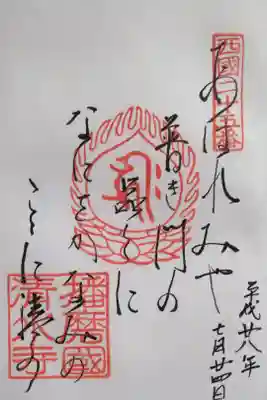 西國二十五番
平成廿八年
七月廿四日
あはれみや
普き門の
品々に
なにをか
なみの
ここに清水
播磨國
清水寺